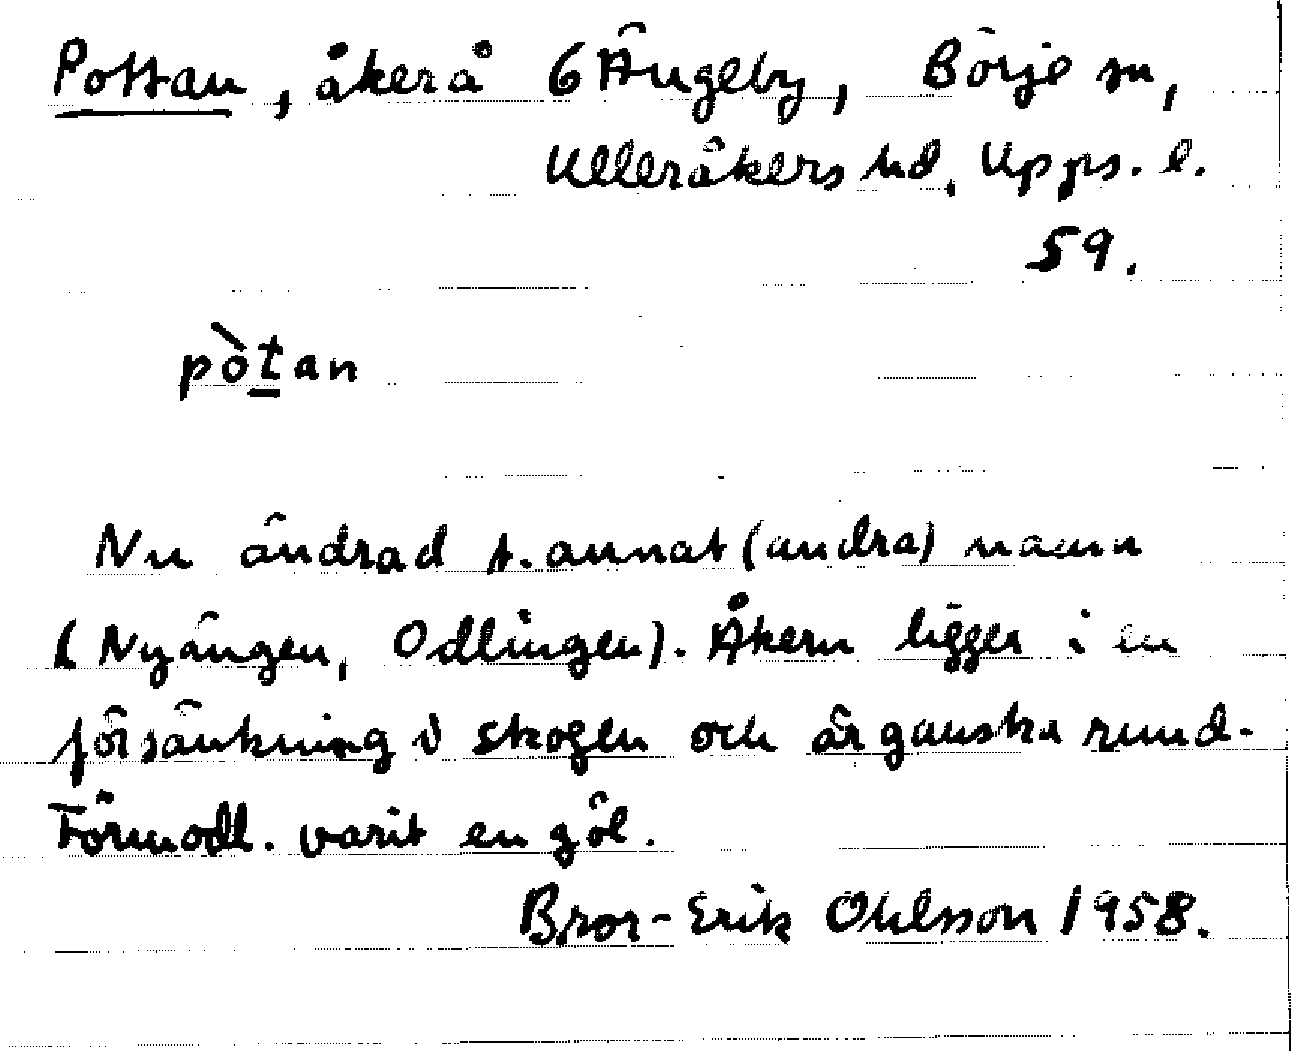 Pottan, åker å 6 Ängeby, Börje sn,
Ulleråkers hd. Upps. l.
59.
pòtan
Nu ändrad t. annat (andra) namn
(Nyängen, Odlingen). Åkern ligger i en
försänkning i skogen och är ganska rund.
Förmodl. varit en göl.
Bror-Erik Ohlsson 1958.